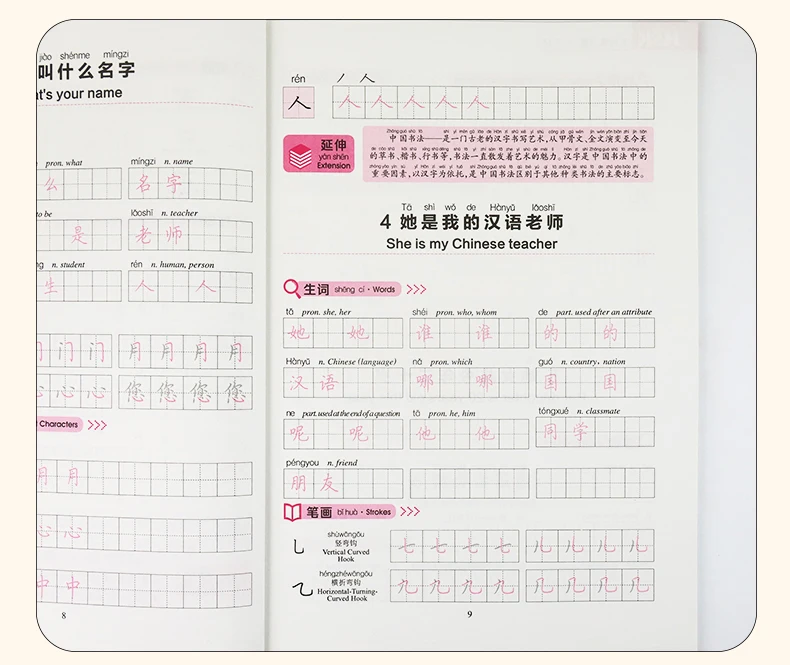 jiào shénme míngzi
叫什么名字
at's your name
pron. what
míngzi n. name
么
名 字
to be
lǎoshī n. teacher
是
老 师
n. student
rén n. human, person
生
人 人
门 门 门
月 月 月 月
心 心 心
您 您 您 您
Characters
月 月
心 心
中 中
8
rén
人
人 人 人 人 人
延伸
yán shēn
Extension
中国书法——是一门古老的汉字书写艺术,从甲骨文、金文演变至今天
的草书、楷书、行书等,书法一直散发着艺术的魅力。汉字是中国书法中的
重要因素,以汉字为依托,是中国书法区别于其他种类书法的主要标志。
Tā shì wǒ de Hànyǔ lǎoshī
4 她是我的汉语老师
She is my Chinese teacher
生词 shēng cí · Words
tā pron. she, her
shéi pron. who, whom
de part. used after an attribute
她 她
谁 谁
的 的
Hànyǔ n. Chinese (language)
nǎ pron. which
guó n. country, nation
汉 语
哪 哪
国 国
ne part. used at the end of a question
tā pron. he, him
tóngxué n. classmate
呢 呢
他 他
同 学
péngyou n. friend
朋 友
笔画 bǐ huà · Strokes
shùwāngōu
竖弯钩
Vertical Curved
Hook
七 七 七 七
儿 儿 儿 儿
héngzhéwāngōu
横折弯钩
Horizontal-Turning-
Curved Hook
九 九 九 九
几 几 几 几
9